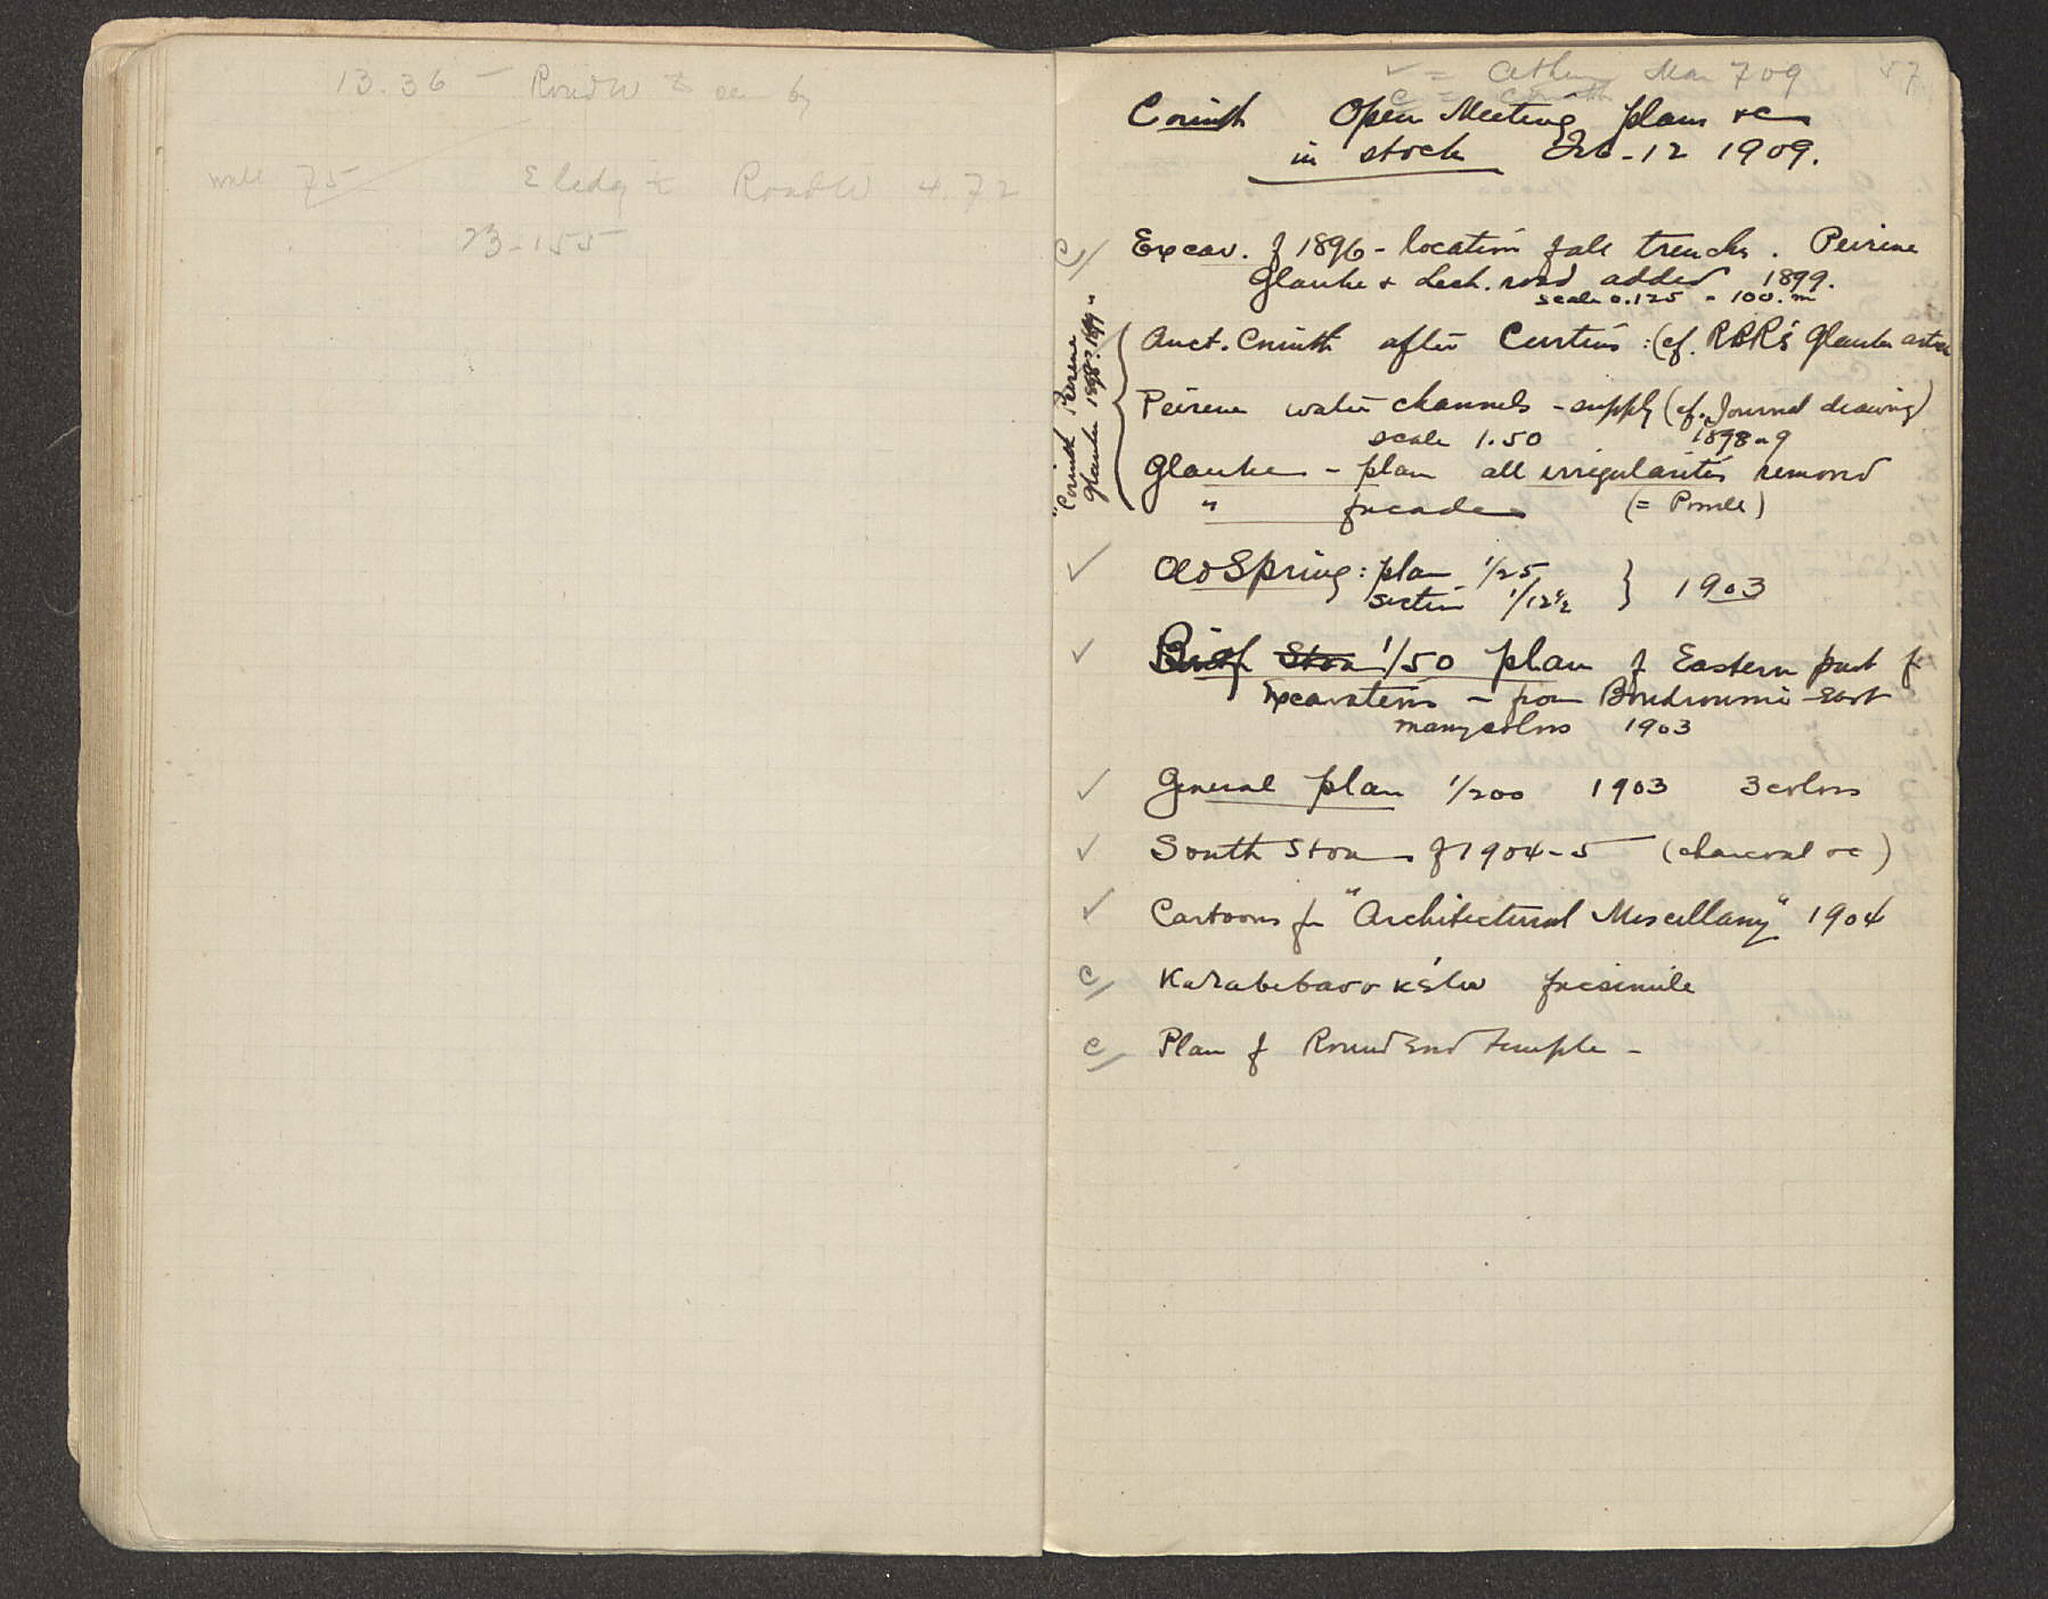 13.36 - Round W to
wall 75 E ledg Round W 4.72
23-155
✓ = Athens Mar 7 09 57
C = Corinth
Corinth Open Meeting plans &c
in stock Feb-12 1909.
C/ Excav. of 1896 - location of all trenches. Peirene
Glauke & Lech. road added 1899.
scale 0.125 = 100. m
"Corinth Peirene
Glauke 1898-1899"
Anct. Corinth after Curtius: (cf. RBR's Glauke article
Peirene water channels - supply (cf. Journal drawing)
scale 1.50 1898-9
Glauke - plan all irregularities removed
" facade (= Pomel)
✓ Old Spring: plan 1/25 } 1903
section 1/12½
✓ Stoa 1/50 plan of Eastern part of
Excavations - from Boudroumi East
many colors 1903
✓ General plan 1/200 1903 3 colors
✓ South Stoa of 1904-5 (charcoal &c)
✓ Cartoons for "Architectural Miscellany" 1904
C/ facsimile
C/ Plan of Round End Temple -